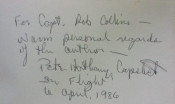 For Capt. Rob Collins —
Warm personal regards
of the author —
Peter Anthony
In Flight
16 April, 1986